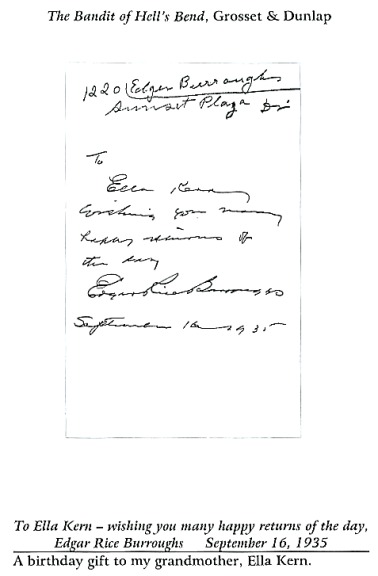 The Bandit of Hell's Bend, Grosset & Dunlap
1220 Edgar Burroughs
Sunset Plaza Dr
To
Ella Kern
wishing you many
happy returns of
the day
Edgar Rice Burroughs
September 16 1935
To Ella Kern – wishing you many happy returns of the day,
Edgar Rice Burroughs September 16, 1935
A birthday gift to my grandmother, Ella Kern.